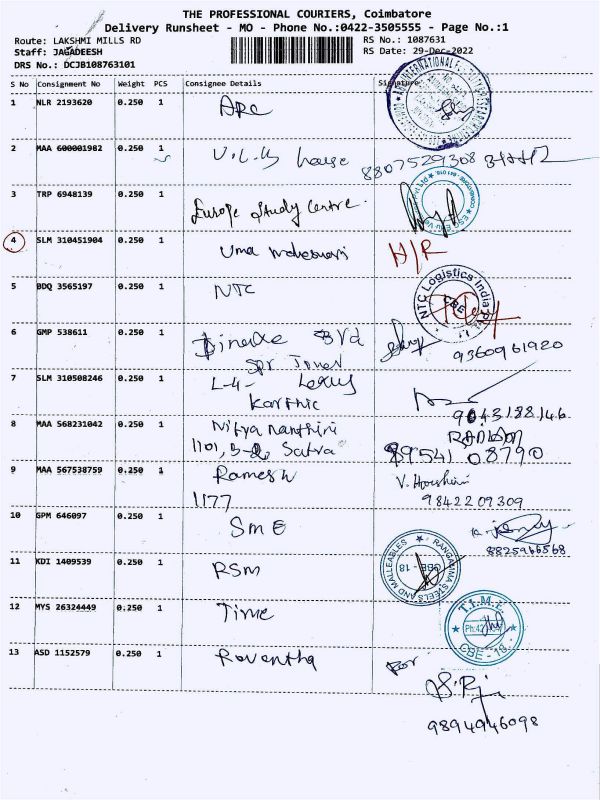 THE PROFESSIONAL COURIERS, Coimbatore
Delivery Runsheet - MO - Phone No.:0422-3505555 - Page No.:1
Route: LAKSHMI MILLS RD RS No.: 1087631
Staff: JAGADEESH RS Date: 29-Dec-2022
DRS No.: DCJB108763101
S No Consignment No Weight PCS Consignee Details Signature
1 NLR 2193620 0.250 1 Are
2 MAA 600001982 0.250 1 house 8807529308
3 TRP 6948139 0.250 1 Europe Study Centre.
4 SLM 310451904 0.250 1 Uma H/R
5 BDQ 3565197 0.250 1 NTC NTC Logistics India CBE
6 GMP 538611 0.250 1 BVD 9360961920
7 SLM 310508246 0.250 1 L-4- Lexus
Karthic
8 MAA 568231042 0.250 1 Nitya
1101, 08790
9 MAA 567538759 0.250 1 Ramesh
1177 9842209309
10 GPM 646097 0.250 1 SME 8825966568
11 KDI 1409539 0.250 1 RSM STEELS AND MALLEABLES CBE - 18
12 MYS 26324449 0.250 1 Time T.I.M.E. CBE - 18
13 ASD 1152579 0.250 1 For
9894946098